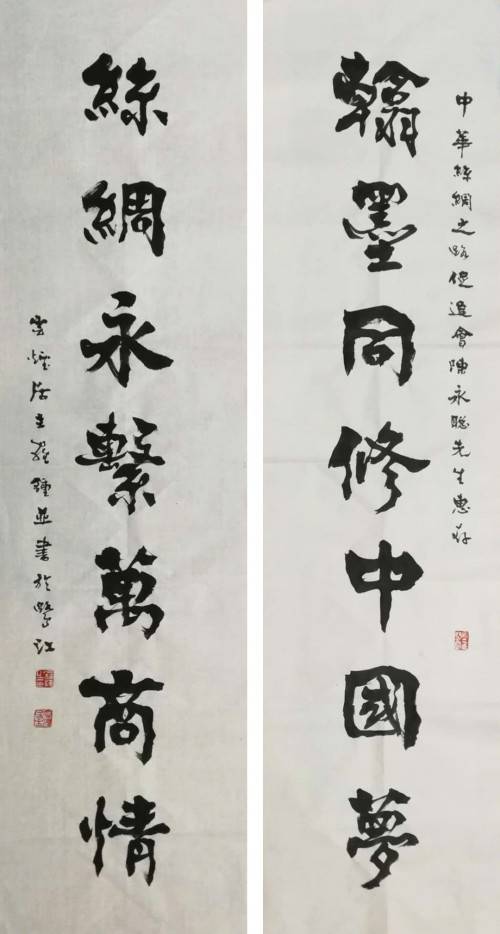 中華絲綢之路促進會陳永聰先生惠存
翰墨同修中國夢
絲綢永繫萬商情
雲煙居主羅鍾並書於鷺江